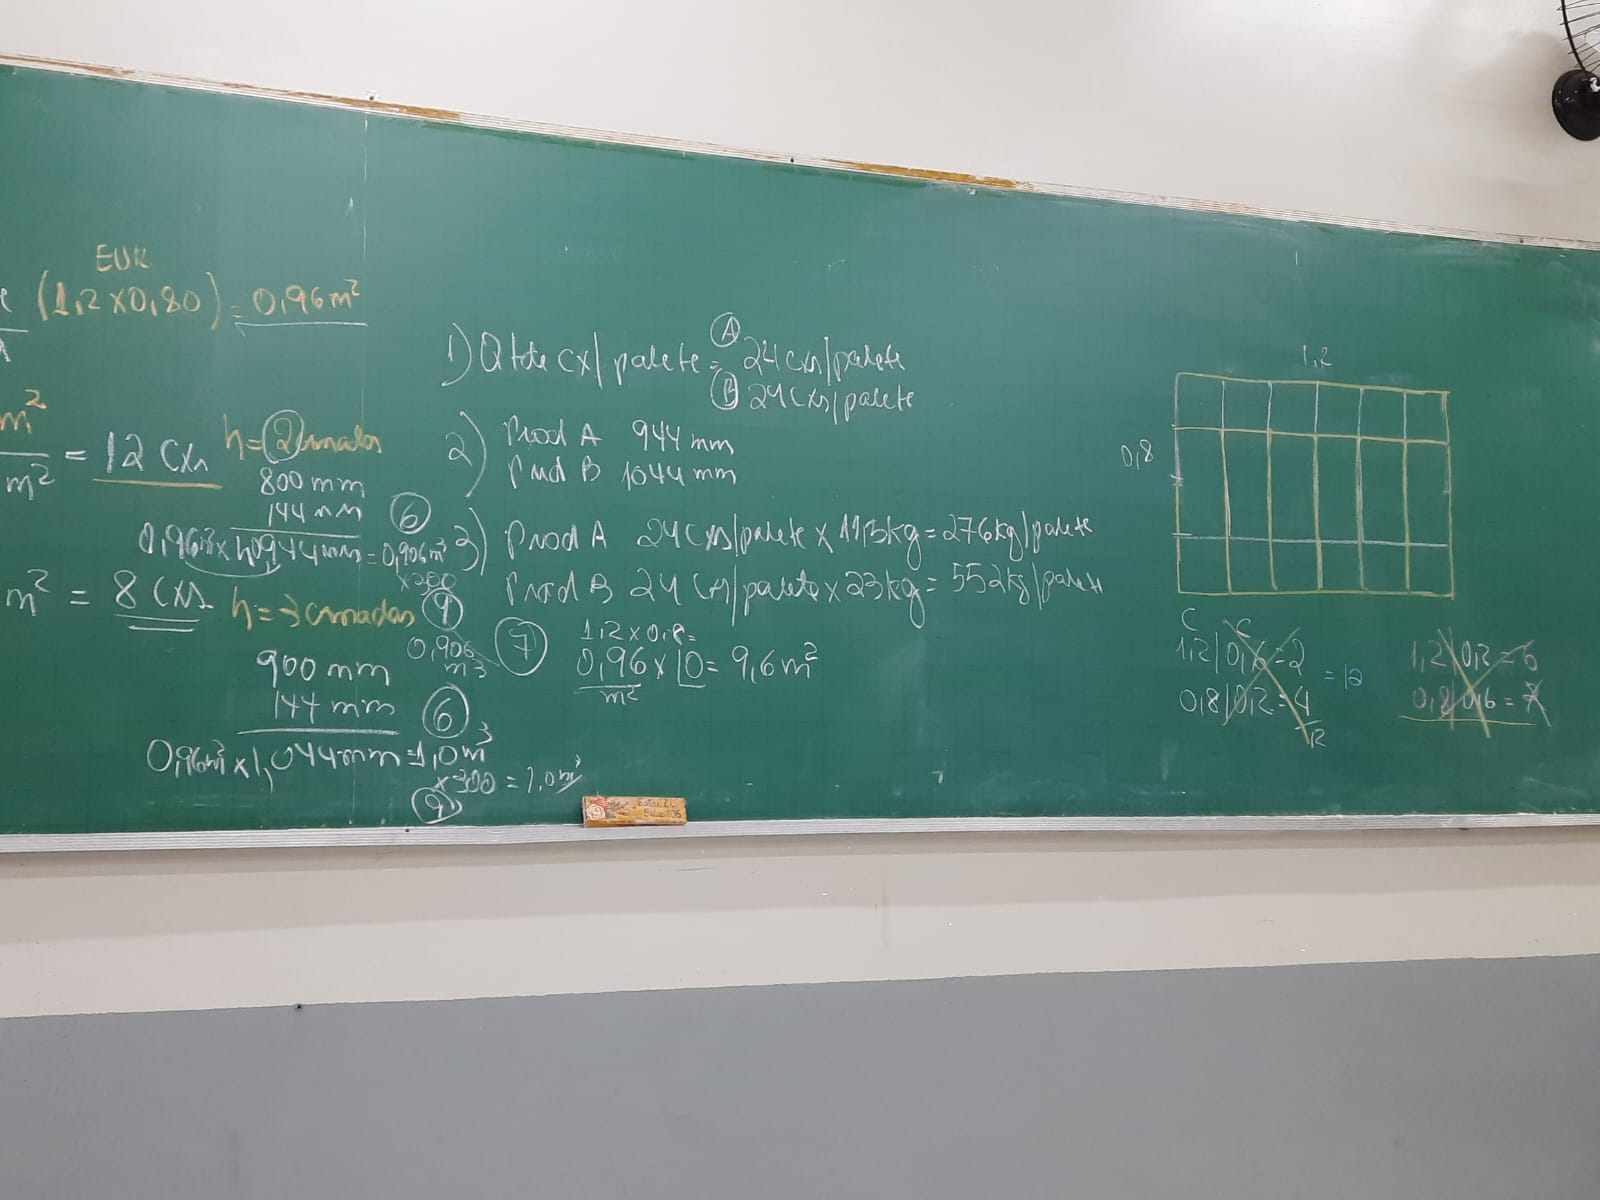 EUR
(1,2 x 0,80) = 0,96 m²
m²
m² = 12 Cxs
h = 2 camadas
800 mm
144 mm
0,96m² x 1,0944mm = 0,906m³
x 300
m² = 8 Cxs
h = 3 camadas
9
0,906
m3
900 mm
144 mm
6
0,96m² x 1,044mm = 1,0m³
x 300 = 1,0m³
9
1) Qtde cx/palete = A 24 cxs/palete
B 24 cxs/palete
2) Prod A 944 mm
Prod B 1044 mm
6
3) Prod A 24 Cxs/palete x 11,5kg = 276kg/palete
Prod B 24 Cxs/palete x 23kg = 552kg/palete
7
1,2 x 0,8 =
0,96 x 10 = 9,6 m²
m²
1,2
0,8
C C
1,2 | 0,6 = 2
0,8 | 0,2 = 4
= 12
1,2 | 0,2 = 6
0,8 | 0,6 =